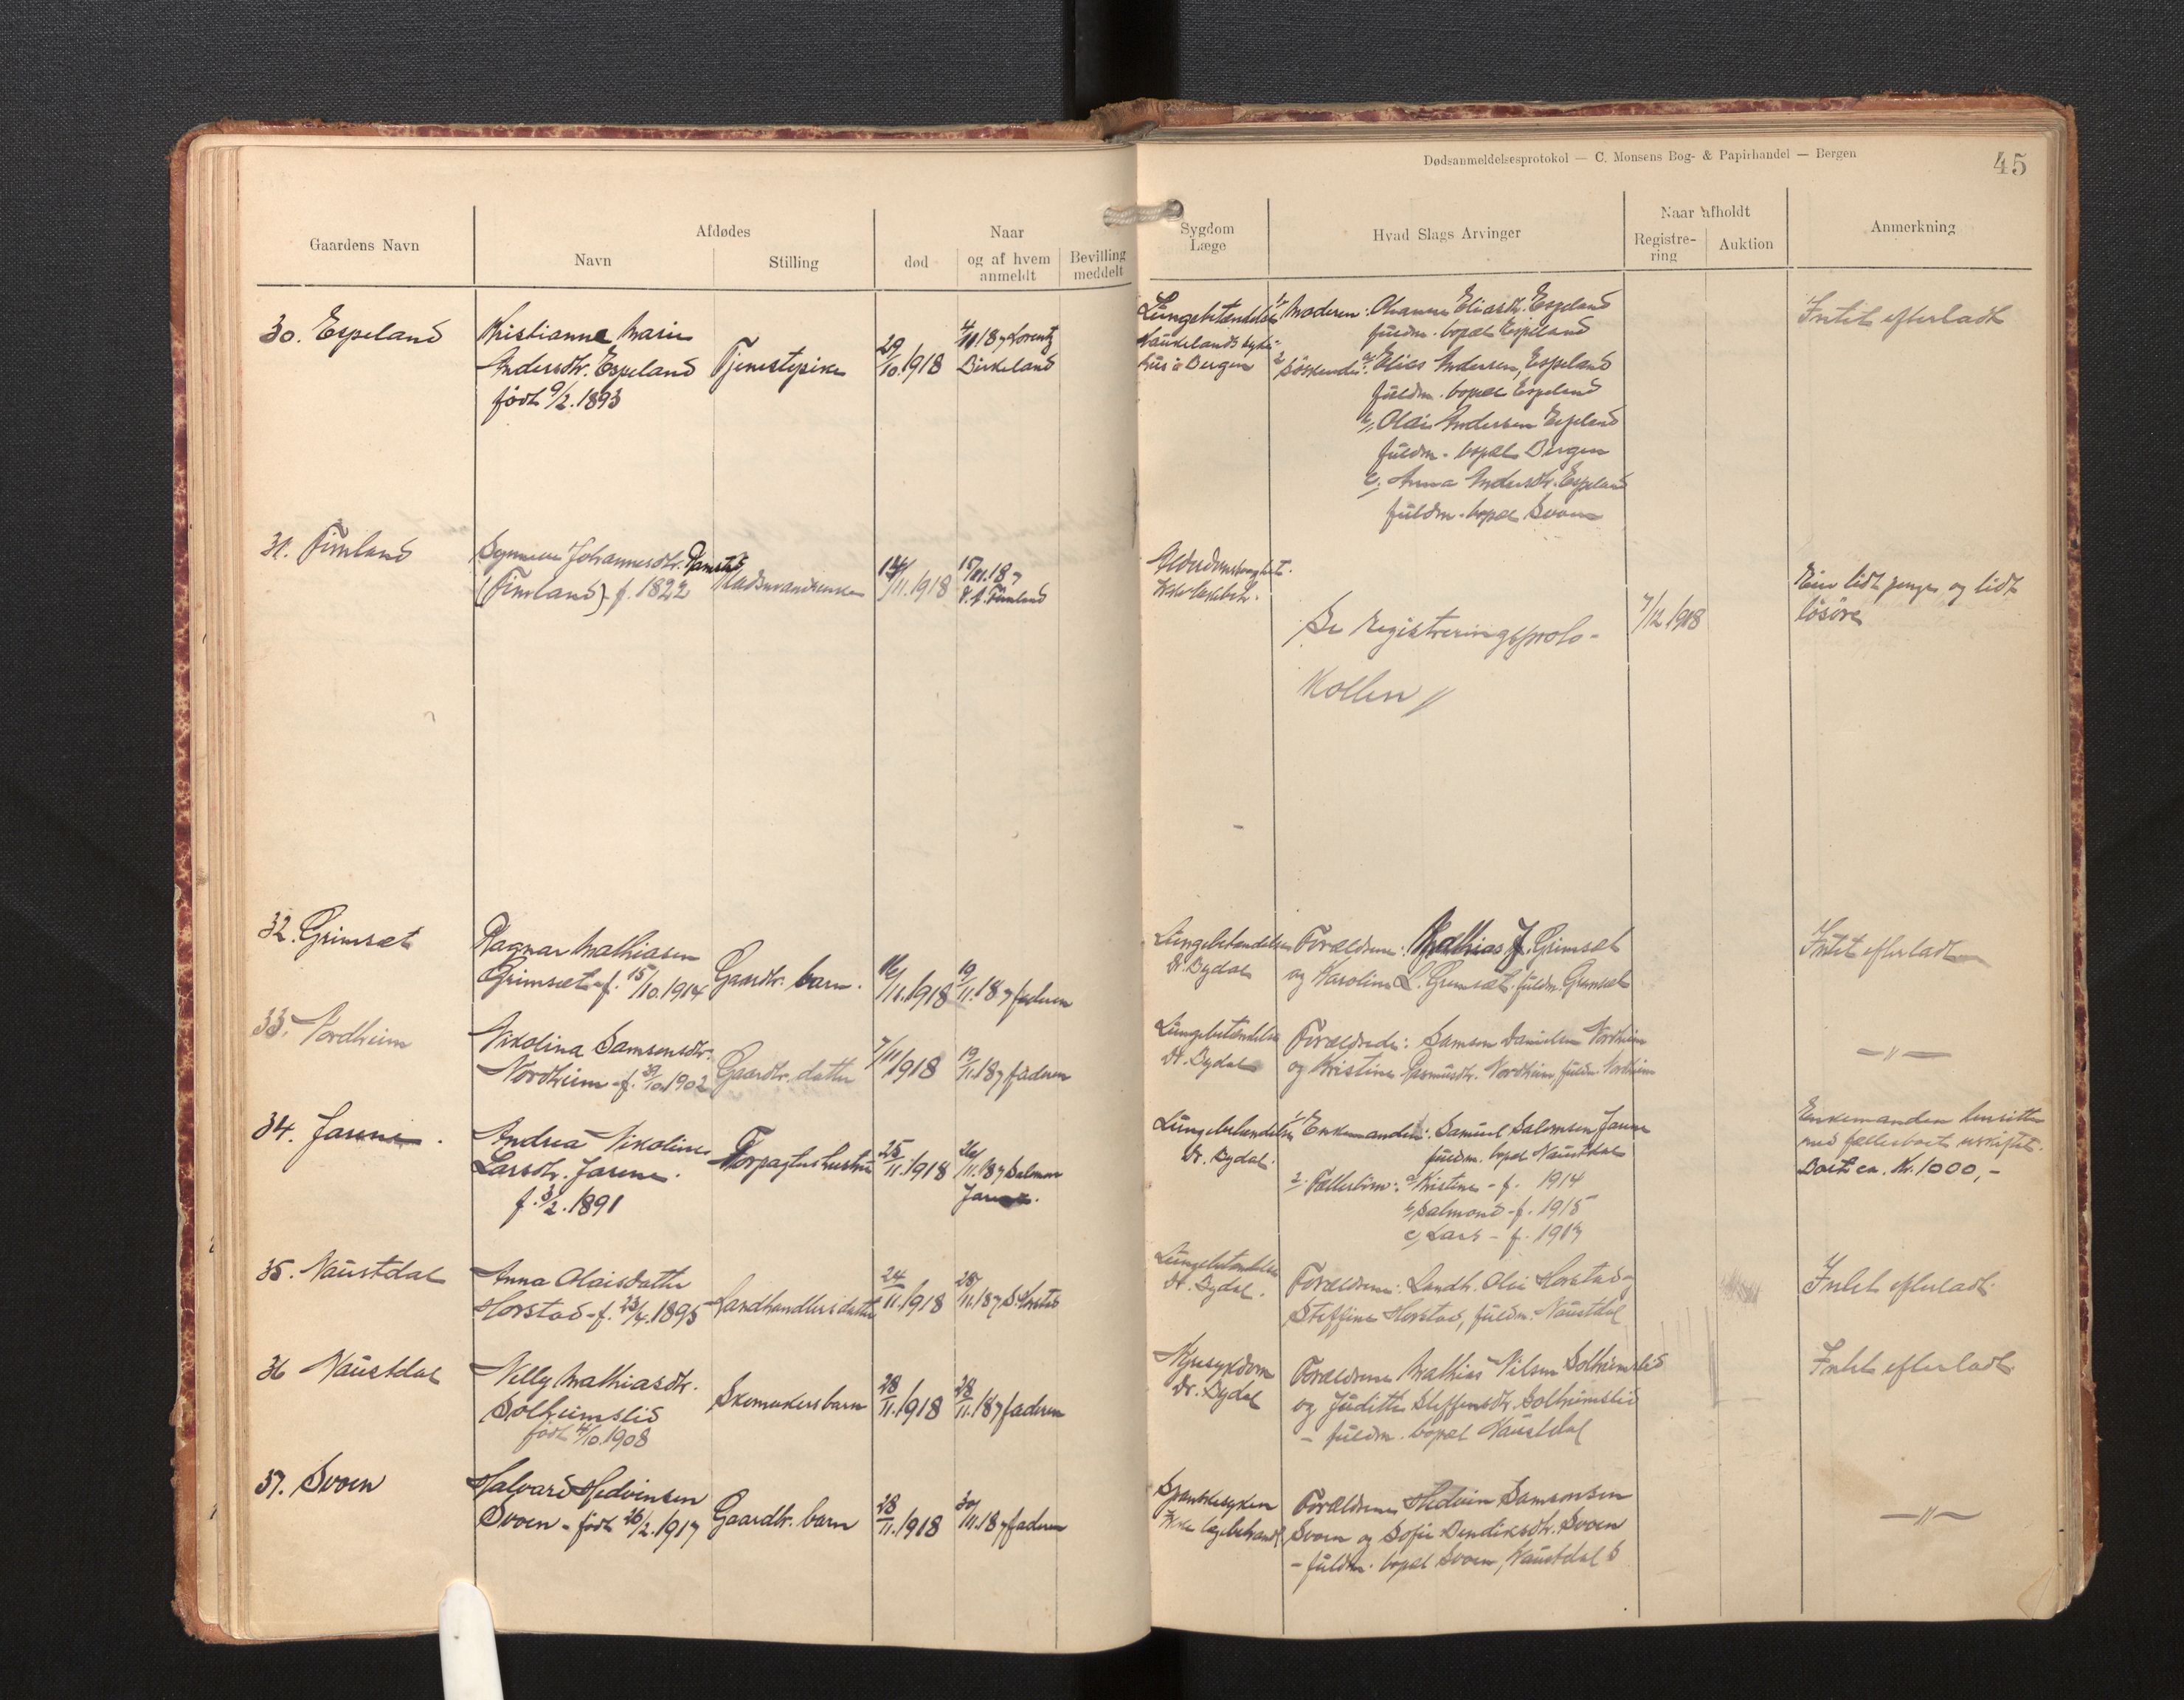 Dødsanmeldelsesprotokol — C. Monsens Bog- & Papirhandel — Bergen
45
Gaardens Navn
Afdødes
Navn
Stilling
Naar
død
og af hvem anmeldt
Bevilling meddelt
Sygdom Læge
Hvad Slags Arvinger
Naar afholdt
Registre-ring
Auktion
Anmerkning
30. Espeland
Kristianne Marie
Andersdtr. Espeland
født 9/2.1893
Tjenestepike
29/10.1918
4/11.18 Lorentz
Birkeland
Lungebetændelse
Haukelands syke-
hus i Bergen
1, Moderen: Eliasdtr. Espeland
fuldm. bopæl Espeland
2, Søskende: a, Elias Andersen, Espeland
fuldm. bopæl Espeland
b, Olai Andersen Espeland
fuldm. bopæl Bergen
c, Anna Andersdtr. Espeland
fuldm. bopæl Svoen
Intet efterladt
31. Fimland
Johannesdtr.
(Fimland) f. 1822
/11.1918
15/11.18
Fimland
Alderdomssvaghet.
Se Registreringsproto-
kollen //
7/12 1918
lidt penge og lidt
løsøre
32. Grimset
Ragnar Mathiasen
Grimset f. 15/10.1914
Gaardbr. barn.
16/11.1918
19/11.18 faderen
Lungebetændelse
Dr. Dydal
Forældrene: Mathias J. Grimset
og Karoline L. Grimset, fuldm. Grimset
Intet efterladt
33. Nordheim
Nikolina Samsonsdtr.
Nordheim f. /10.1902
Gaardbr. datter
7/11 1918
19/11.18 faderen
Lungebetændelse
Dr. Dydal
Forældrede: Samson Danielsen Nordheim
og Kristine Rasmusdtr. Nordheim, fuldm. Nordheim
— " —
34. Jarene.
Andrea Nikoline
Larsdtr. Jarene.
f. 3/2.1891
Forpagterhustru
25/11.1918
26/11.18 Salmon
Jarene.
Lungebetændelse
Dr. Dydal.
1, Enkemanden: Samuel Salmonsen Jarene
fuldm. bopæl Naustdal
2, Fællesbørn: a, Kristine - f. 1914
b, Salmond - f. 1915
c, Lars - f.
Enkemanden hensitter
med fællesboet uskiftet.
Boet ca. Kr. 1000,-
35. Naustdal
Anna Olaisdatter
Horstad - f. 23/4.1895
Landhandlers datter
24/11.1918
28/11.18
Lungebetændelse
Dr. Dydal.
Forældrene: Landh. Olai Horstad og
Steffine Horstad, fuldm. Naustdal
Intet efterladt.
36 Naustdal
Nelly Mathiasdtr.
Solheimslid
født /10.1908
Skomakers barn
28/11.1918
28/11.18 faderen
Dr. Dydal
Forældrene Mathias Nilsen Solheimslid
og Judithe Steffensdtr. Solheimslid
- fuldm. bopæl Naustdal
Intet efterladt.
37. Svoen
Halvard Hedvinsen
Svoen - født 26/2.1917
Gaardbr. barn
28/11.1918
30/11.18 faderen
Spanskesyken
Ikke lægebehandl.
Forældrene Hedvin Samsonsen
Svoen og Sofie Bendiksdtr. Svoen
- fuldm. bopæl Svoen, Naustdal
— " —